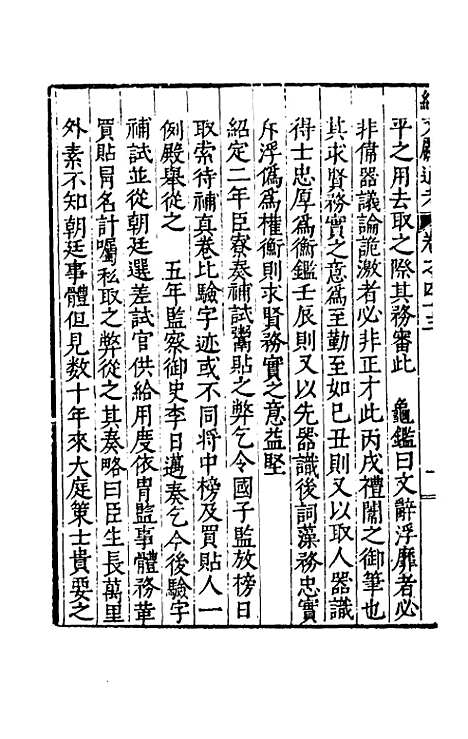 續文獻通考卷之四十三
平之用去取之際其務審此　龜鑑曰文辭浮靡者必
非偹器議論詭激者必非正才此丙戌禮闈之御筆也
其求賢務實之意爲至勤至如巳丑則又以取人器識
得士忠厚爲衡鑑壬辰則又以先器識後詞藻務忠實
斥浮僞爲權衡則求賢務實之意益堅
紹定二年臣寮奏補試鬻貼之弊乞令國子監放榜日
取索待補真卷比驗字迹或不同將中榜及買貼人一
例殿舉從之　五年監察御史李日邁奏乞今後驗字
補試並從朝廷選差試官供給用度依胄監事體務革
買貼冐名計囑私取之弊從之其奏略曰臣生長萬里
外素不知朝廷事體但見数十年來大庭策士貴要之
一